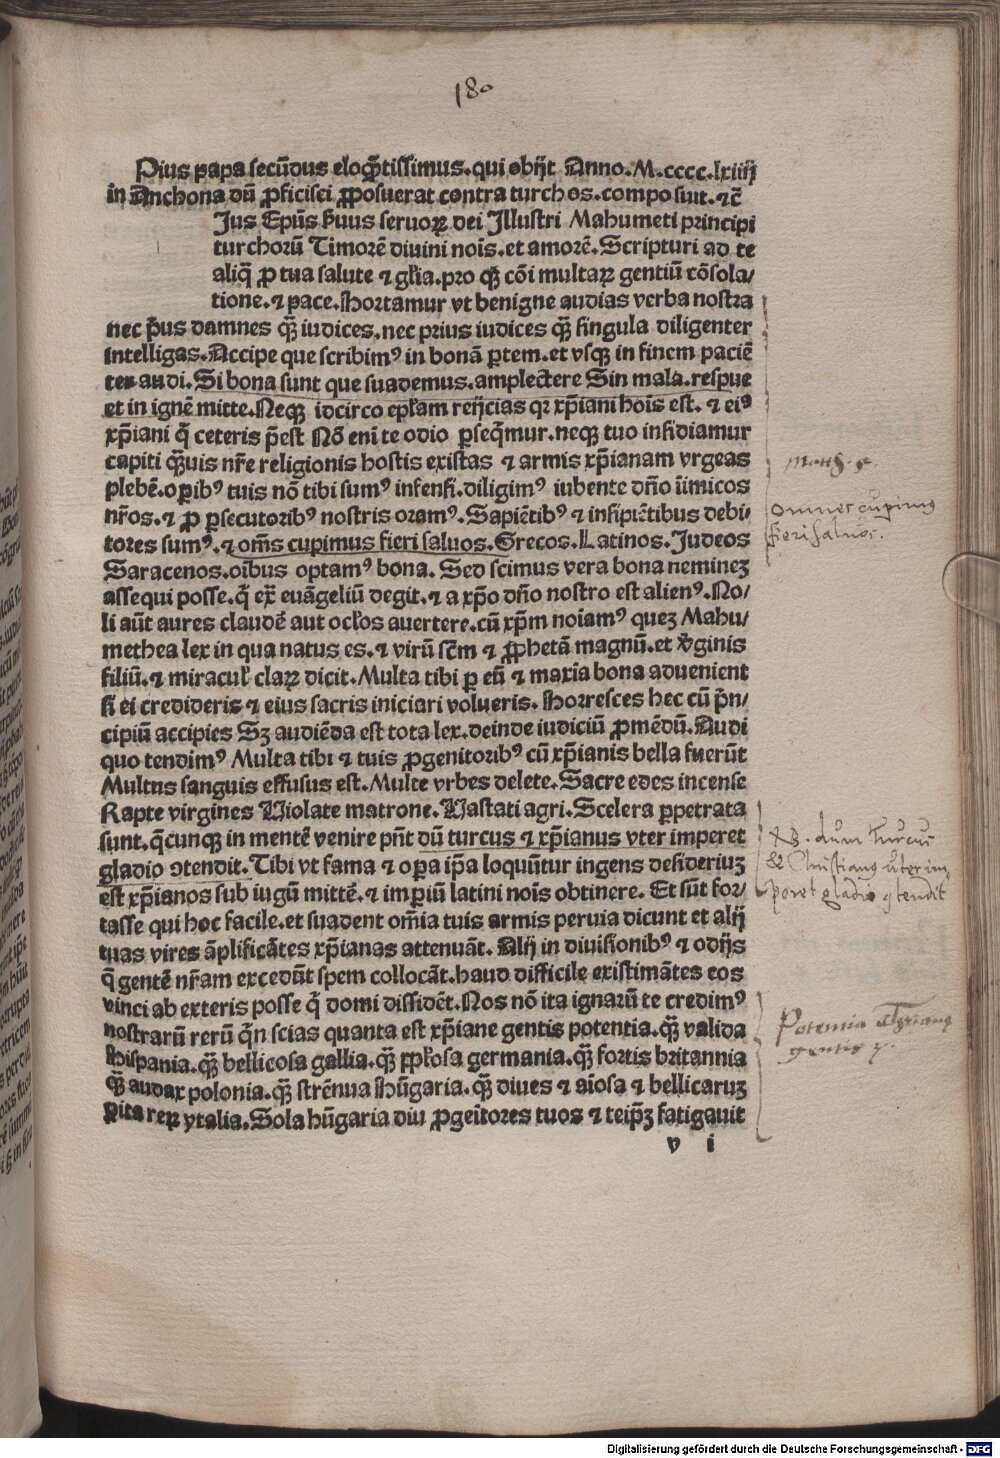 180
Pius papa secūdus eloq̄tissimus.qui obijt Anno.M.cccc.lxiiij
in Anchona dū ꝓficisci ꝓposuerat contra turchos.composuit.⁊c̄
Jus Ep̄us s̄uus seruoꝝ dei Jllustri Mahumeti principi
turchorū Timorē diuini nois̄.et amorē.Scripturi ad te
aliq̄ ꝓ tua salute ⁊ gl̄ia.pro qꝫ cōi multaꝝ gentiū cōsola/
tione.⁊ pace.Hortamur vt benigne audias verba nostra
nec p̄us damnes qꝫ̄ iudices.nec prius iudices qꝫ̄ singula diligenter
intelligas.Accipe que scribimꝰ in bonā ꝑtem.et vsqꝫ in finem paciē
ter audi.Si bona sunt que suademus.amplectere Sin mala.respue
et in ignē mitte.Neqꝫ idcirco epl̄am reijcias qꝛ xp̄iani hois̄ est.⁊ eiꝰ
xp̄iani q̄ ceteris p̄est Nō eni te odio ꝑseq̄mur.neqꝫ tuo insidiamur
capiti qꝫ̄uis nr̄e religionis hostis existas ⁊ armis xp̄ianam vrgeas
plebē.oꝑibꝰ tuis nō tibi sumꝰ infensi.diligimꝰ iubente dn̄o inimicos
nr̄os.⁊ ꝓ ꝑsecutoribꝰ nostris oramꝰ.Sapiētibꝰ ⁊ insipiētibus debi/
tores sumꝰ.⁊ om̄s cupimus fieri saluos.Grecos.Latinos.Judeos
Saracenos.oībus optamꝰ bona.Sed scimus vera bona neminez
assequi posse.q̄ ex̄ euāgeliū degit.⁊ a xp̄o dn̄o nostro est alienꝰ.No/
li aūt aures claudē aut ocl̄os auertere.cū xp̄m noiamꝰ quez Mahu/
methea lex in qua natus es.⁊ virū sc̄m ⁊ ꝓphetā magnū.et v̄ginis
filiū.⁊ miracul̄ claꝝ dicit.Multa tibi ꝑ eū ⁊ maxīa bona aduenient
si ei credideris ⁊ eius sacris iniciari volueris.Horresces hec cū p̄n/
cipiū accipies Sꝫ audiēda est tota lex.deinde iudiciū ꝓmēdū.Audi
quo tendimꝰ Multa tibi ⁊ tuis ꝓgenitoribꝰ cū xp̄ianis bella fuerūt
Multus sanguis effusus est.Multe vrbes delete.Sacre edes incense
Rapte virgines Uiolate matrone.Uastati agri.Scelera ꝑpetrata
sunt.q̄cunqꝫ in mentē venire pn̄t dū turcus ⁊ xp̄ianus vter imperet
gladio ꝯtendit.Tibi vt fama ⁊ oꝑa ip̄a loquūtur ingens desideriuz
est xp̄ianos sub iugū mittē.⁊ imꝑiū latini nois̄ obtinere. Et sūt for/
tasse qui hoc facile.et suadent om̄ia tuis armis peruia dicunt et alij
tuas vires āplificātes xp̄ianas attenuāt. Alij in diuisionibꝰ ⁊ odijs
q̄ gentē nr̄am excedūt spem collocāt.haud difficile existimātes eos
vinci ab exteris posse q̄ domi dissidēt.Nos nō ita ignarū te credimꝰ
nostrarū rerū q̄n scias quanta est xp̄iane gentis potentia.qꝫ̄ valida
Hispania.qꝫ̄ bellicosa gallia.qꝫ̄ ppl̄osa germania.qꝫ̄ fortis britannia
qꝫ̄ audax polonia.qꝫ̄ strēnua Hūgaria.qꝫ̄ diues ⁊ aīosa ⁊ bellicaruz
ꝑita reꝝ ytalia.Sola hūgaria diu ꝓgeītores tuos ⁊ teip̄ꝫ fatigauit
v i
Matth. 5.
omnes cupimus
fieri saluos.
NB. dum Turcus
& Christianus uter im
peret gladio ꝯtendit
Potentia Christianę
gentis
Digitalisierung gefördert durch die Deutsche Forschungsgemeinschaft - DFG